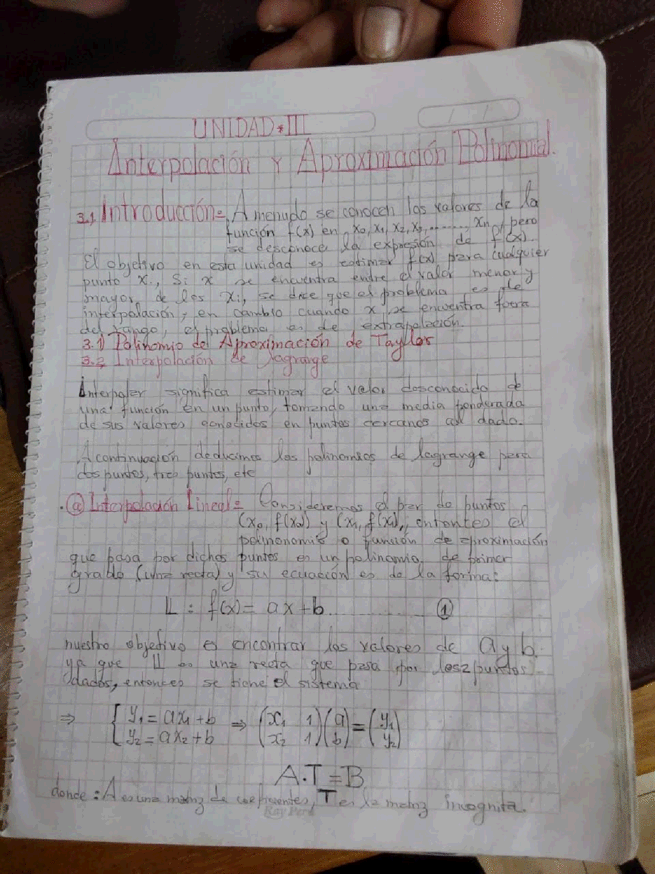 UNIDAD III
Interpolación y Aproximación Polinomial.
3.1 Introducción= A menudo se conocen los valores de la
función f(x) en x₀, x₁, x₂, x₃, ........ xₙ, pero
se desconoce la expresión de f(x).
El objetivo en esta unidad es estimar f(x) para cualquier
punto x., Si x se encuentra entre el valor menor y
mayor de los xᵢ, se dice que el problema es de
interpolación, en cambio cuando x se encuentra fuera
del rango, el problema es de extrapolación.
3.1) Polinomio de Aproximación de Tayllor
3.2 Interpolación de Lagrange
Interpolar significa estimar el valor desconocido de
una función en un punto, tomando una media ponderada
de sus valores conocidos en puntos cercanos al dado.
A continuación deducimos los polinomios de lagrange para
dos puntos, tres puntos, etc
ⓐ Interpolación Lineal= Consideremos el par de puntos
(x₀, f(x₀)) y (x₁, f(x₁)), entonces el
polinonomio o función de aproximación
que pasa por dichos puntos es un polinomio de primer
grado (una recta) y su ecuación es de la forma:
L : f(x) = ax+b ............ ①
nuestro objetivo es encontrar los valores de a y b
ya que L es una recta que pasa por los 2 puntos
dados, entonces se tiene el sistema
⇒ { y₁ = ax₁+b ⇒ (x₁ 1) (a) = (y₁)
y₂ = ax₂+b (x₂ 1) (b) (y₂)
A.T = B
donde: A es una matriz de coeficientes, T es la matriz incognita.